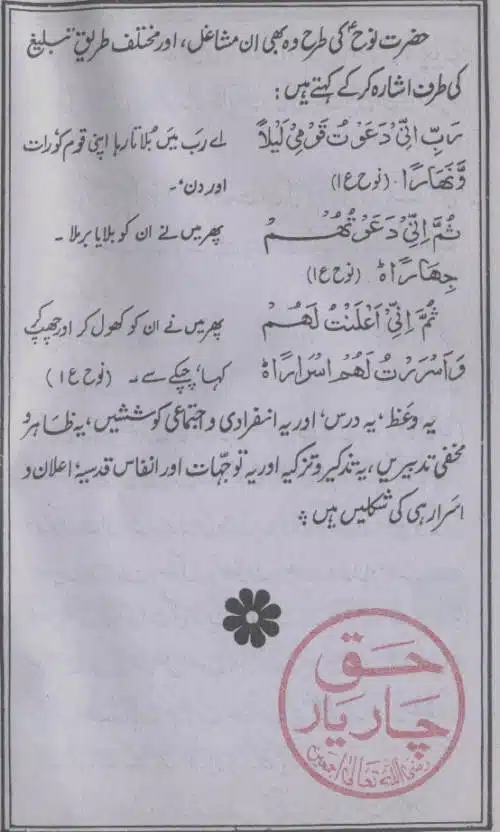 حضرت نوحؑ کی طرح وہ بھی ان مشاغل، اور مختلف طریقِ تبلیغ
کی طرف اشارہ کر کے کہتے ہیں:
رَبِّ اِنِّیْ دَعَوْتُ قَوْمِیْ لَیْلًا
وَّنَهَارًا۔ (نوح ع ۱)
اے رب میں بُلاتا رہا اپنی قوم کو رات
اور دن۔
ثُمَّ اِنِّیْ دَعَوْتُهُمْ
جِهَارًا ہ (نوح ع ۱)
پھر میں نے ان کو بلایا برملا۔
ثُمَّ اِنِّیْ اَعْلَنْتُ لَهُمْ
وَاَسْرَرْتُ لَهُمْ اِسْرَارًا ہ
پھر میں نے ان کو کھول کر اور چھپ کے
کہا، چپکے سے۔ (نوح ع ۱)
یہ وعظ، یہ درس، اور یہ انفرادی و اجتماعی کوششیں، یہ ظاہر و
مخفی تدبیریں، یہ تذکیر و تزکیہ اور یہ توجہات اور انفاس قدسیہ، اعلان و
اسرار ہی کی شکلیں ہیں
حق
چار یار
رضی اللہ تعالیٰ اجمعین